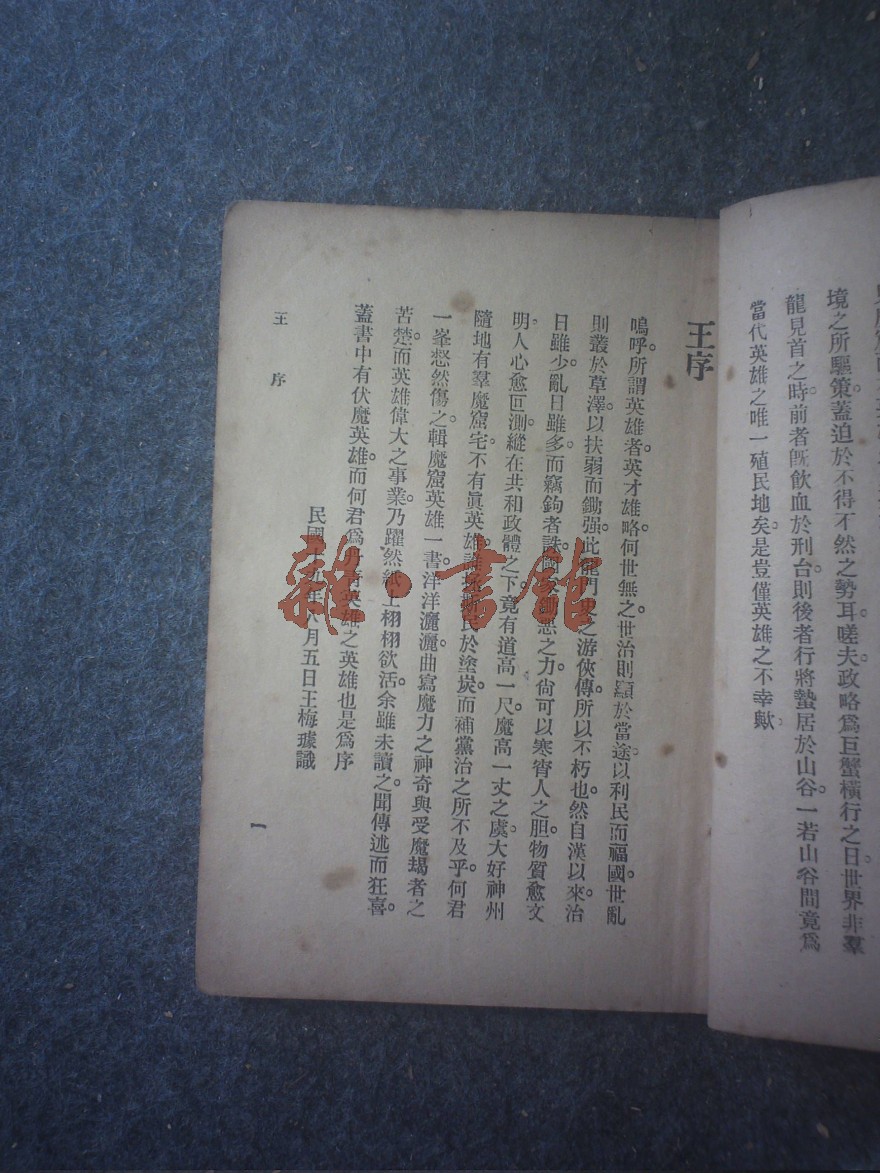 境之所驅策蓋迫於不得不然之勢耳嗟夫政略爲巨蟹橫行之日世界非羣
龍見首之時前者旣飲血於刑台則後者行將蟄居於山谷一若山谷間竟爲
當代英雄之唯一殖民地矣是豈僅英雄之不幸歟
王序
嗚呼。所謂英雄者。英才雄略。何世無之。世治則顯於當途。以利民而福國。世亂
則叢於草澤。以扶弱而鋤强。此龍門之游俠傳。所以不朽也。然自漢以來。治
日雖少。亂日雖多。而竊鉤者誅。國之力。尙可以寒宵人之胆。物質愈文
明。人心愈叵測。縱在共和政體之下。竟有道高一尺。魔高一丈之虞。大好神州
隨地有羣魔窟宅。不有眞英雄。民於塗炭。而補黨治之所不及乎。何君
一峯惄然傷之。輯魔窟英雄一書。洋洋灑灑。曲寫魔力之神奇。與受魔蝎者之
苦楚。而英雄偉大之事業。乃躍然紙上。栩栩欲活。余雖未讀之。聞傳述而狂喜。
蓋書中有伏魔英雄。而何君爲英雄之英雄也。是爲序
民國十九年八月五日王梅璩識
王序
一
雜·書館